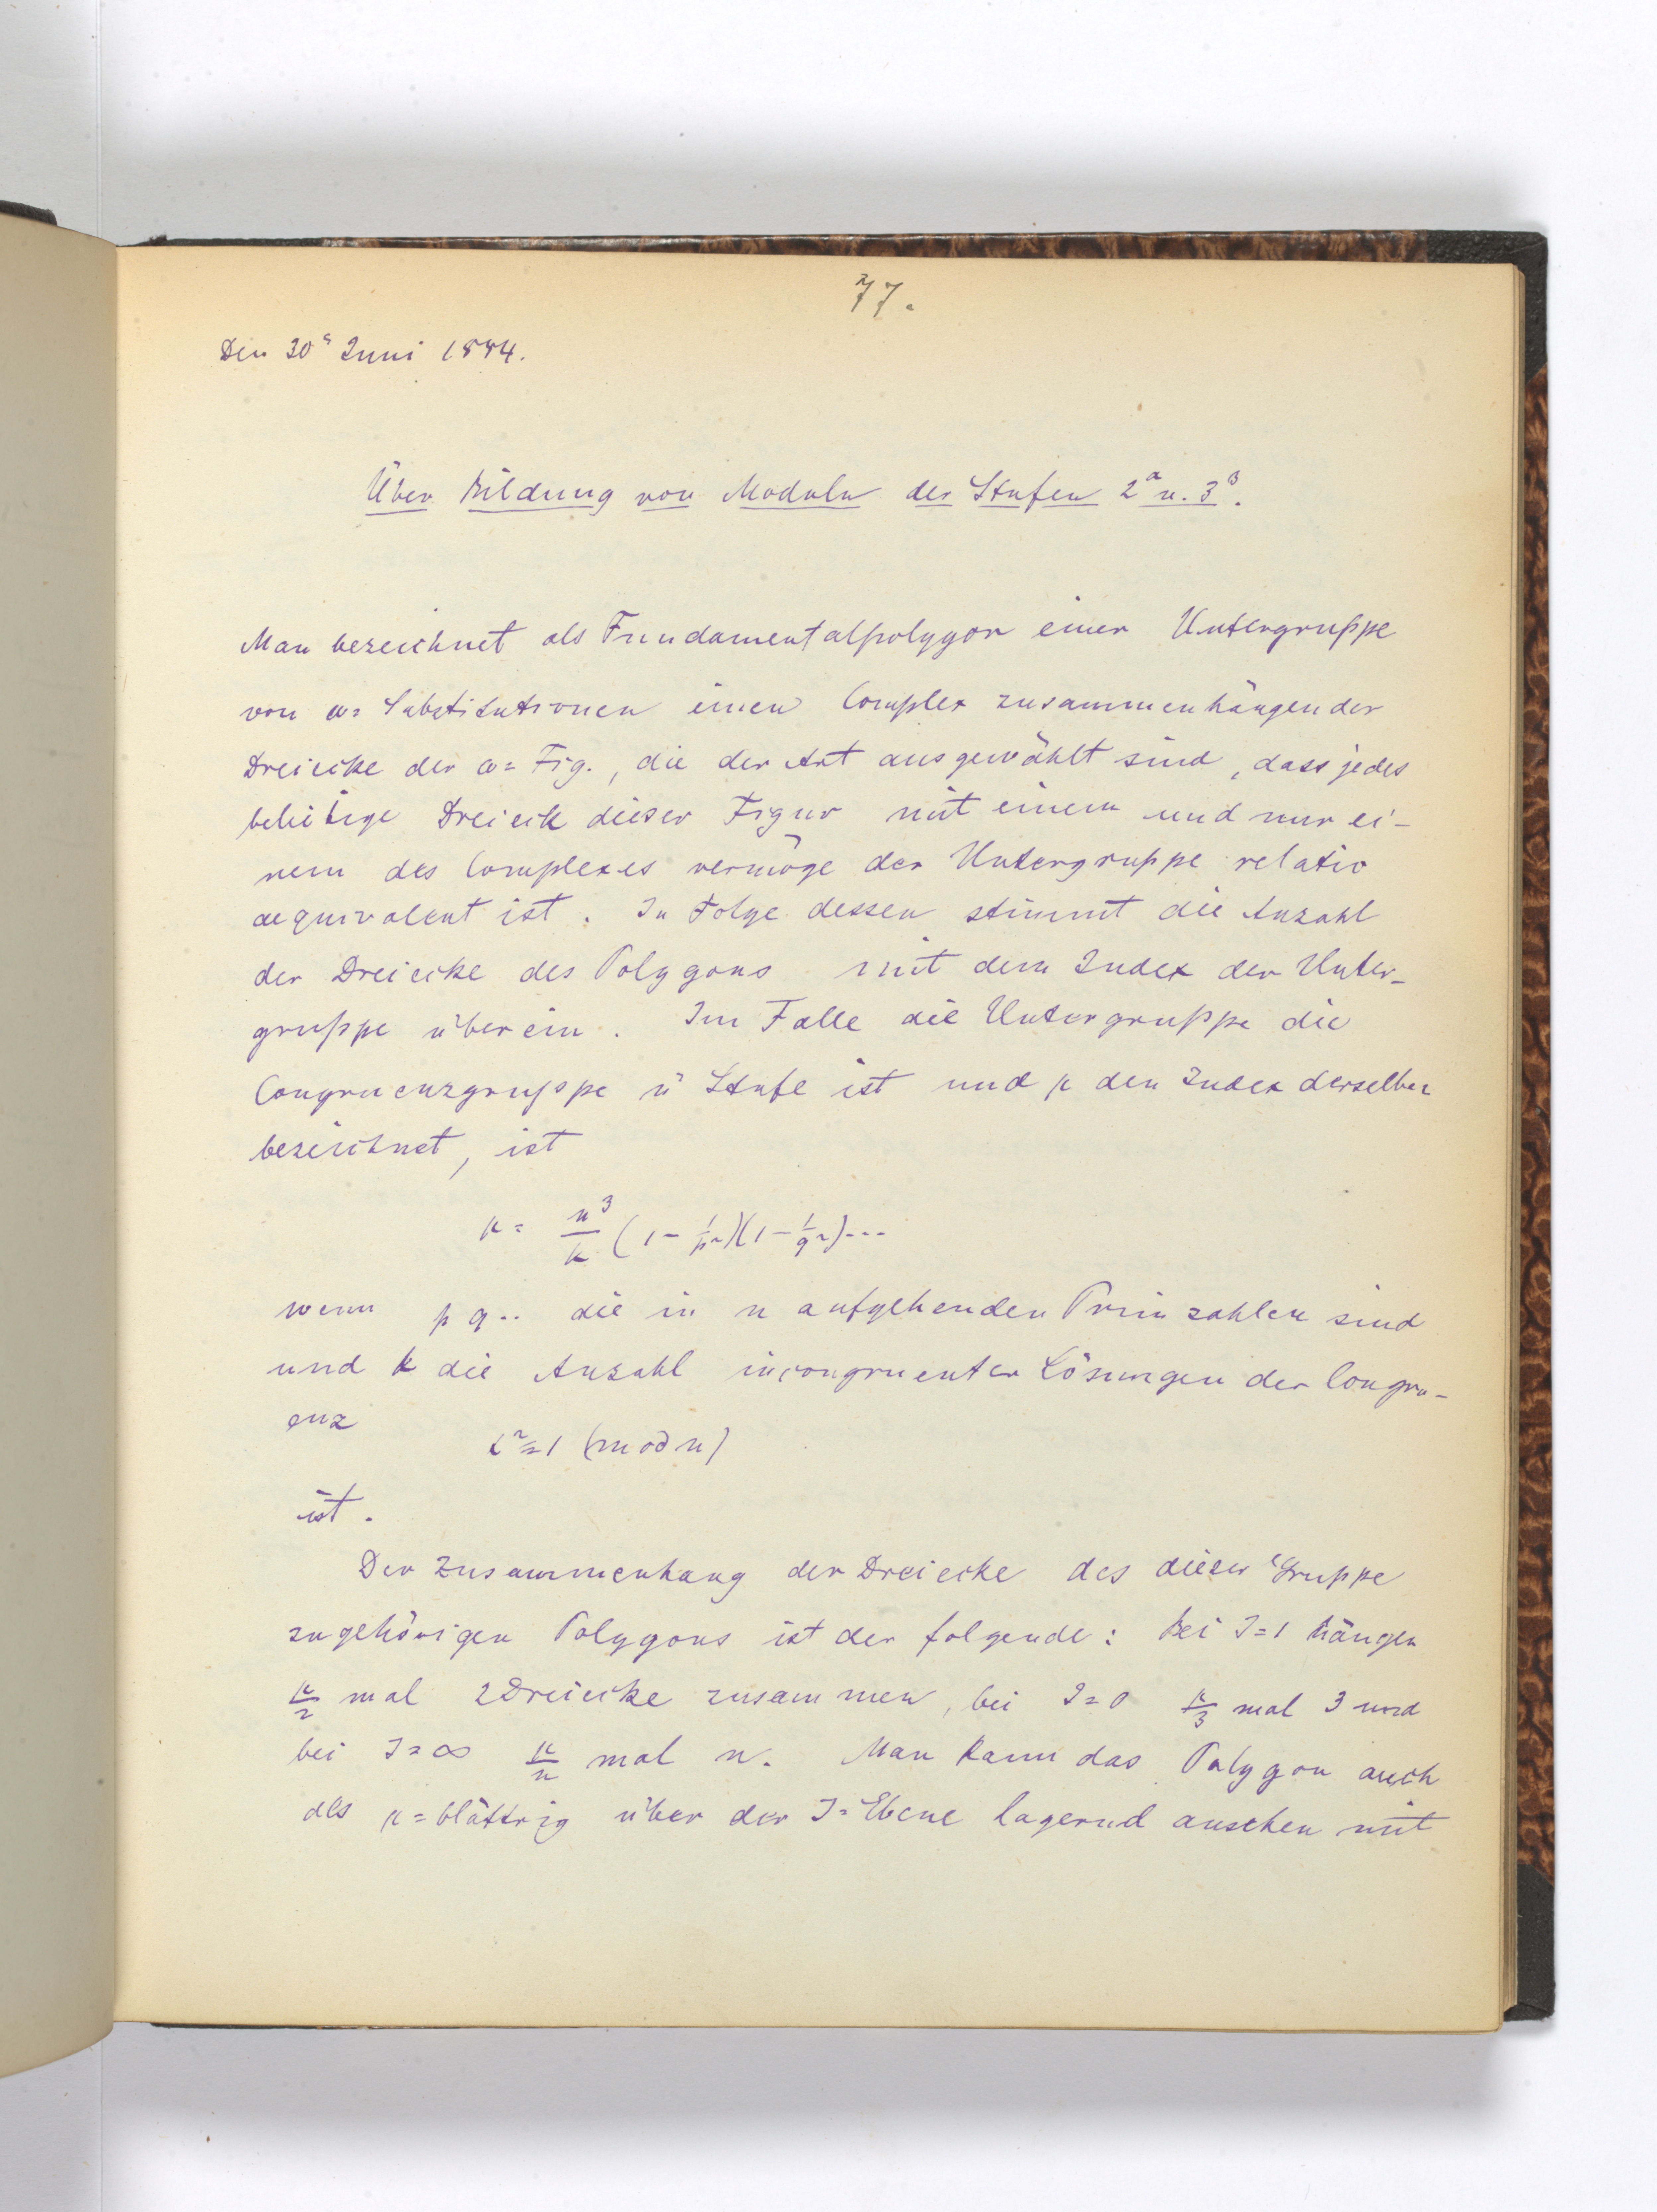 77.
Den 30ᵗ Juni 1884.
Über Bildung von Moduln der Stufen 2^α u. 3^β.
Man bezeichnet als Fundamentalpolygon einer Untergruppe
von ω= Substitutionen einen Complex zusammenhängender
Dreiecke der ω= Fig., die der Art ausgewählt sind, dass jedes
beliebige Dreieck dieser Figur mit einem und nur ei-
nem des Complexes vermöge der Untergruppe relativ
aequivalent ist. In Folge dessen stimmt die Anzahl
der Dreiecke des Polygons mit dem Index der Unter-
gruppe überein. Im Falle die Untergruppe die
Congruenzgruppe n Stufe ist und μ den Index derselben
bezeichnet, ist
μ = n³/k (1 - 1/p²)(1 - 1/q²)...
wenn p q.. die in n aufgehenden Primzahlen sind
und k die Anzahl incongruenter Lösungen der Congru-
enz
≡ 1 (mod n)
ist.
Der Zusammenhang der Dreiecke des dieser Gruppe
zugehörigen Polygons ist der folgende: Bei J=1 hängen
μ/2 mal 2 Dreiecke zusammen, bei J=0 μ/3 mal 3 und
bei J=∞ μ/n mal n. Man kann das Polygon auch
als μ=blättrig über der J=Ebene lagernd ansehen mit